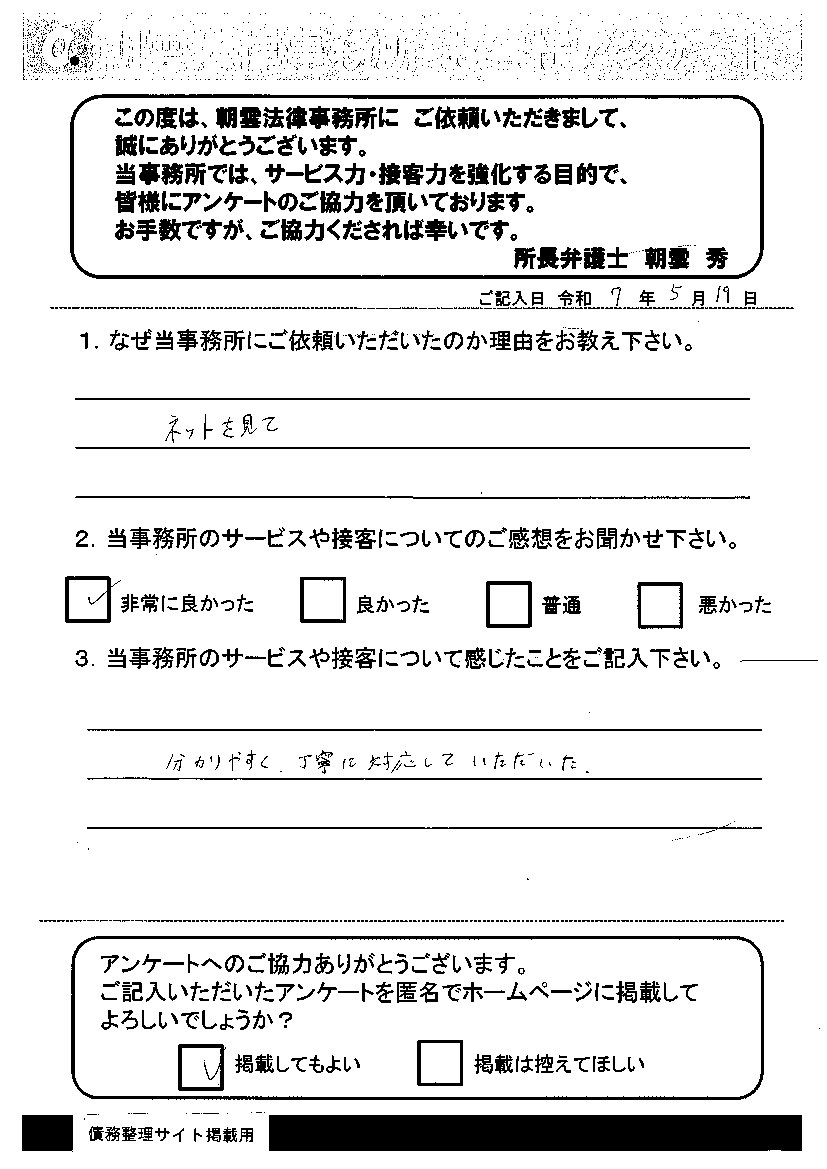 この度は、朝雲法律事務所に ご依頼いただきまして、
誠にありがとうございます。
当事務所では、サービス力・接客力を強化する目的で、
皆様にアンケートのご協力を頂いております。
お手数ですが、ご協力くだされば幸いです。
所長弁護士 朝雲 秀
ご記入日 令和 7 年 5 月 19 日
1. なぜ当事務所にご依頼いただいたのか理由をお教え下さい。
ネットを見て
2. 当事務所のサービスや接客についてのご感想をお聞かせ下さい。
非常に良かった 良かった 普通 悪かった
3. 当事務所のサービスや接客について感じたことをご記入下さい。
分かりやすく、丁寧に対応していただいた。
アンケートへのご協力ありがとうございます。
ご記入いただいたアンケートを匿名でホームページに掲載して
よろしいでしょうか？
掲載してもよい 掲載は控えてほしい
債務整理サイト掲載用